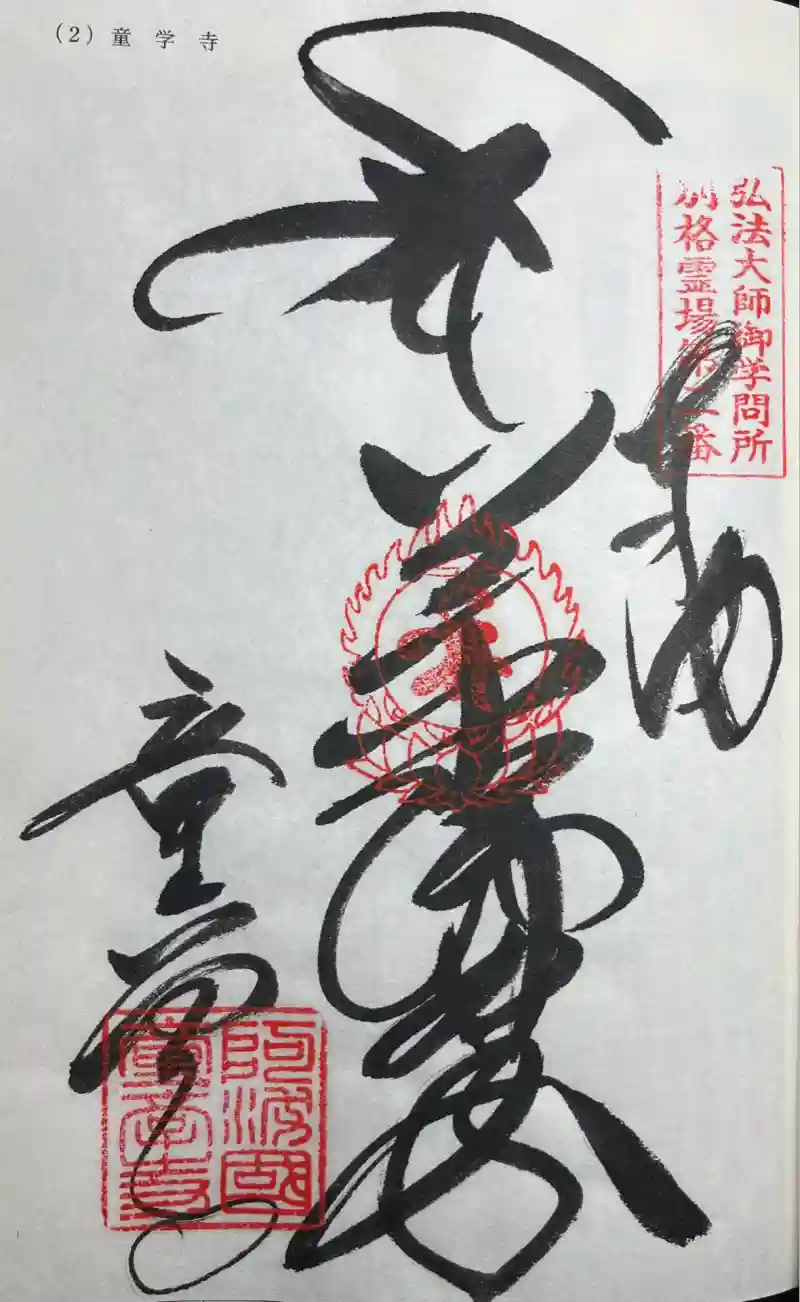 (2) 童学寺
弘法大師御学問所
別格霊場第二番
奉納
童学寺
阿波國
童学寺